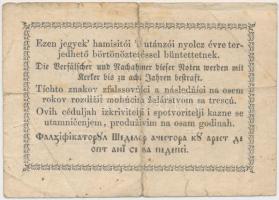 Ezen jegyek' hamisitói 's utánzói nyolcz évre ter-
jedhető börtönöztetéssel büntettetnek.
Die Verfälscher und Nachahmer dieser Noten werden mit
Kerker bis zu acht Jahren bestraft.
Tíchto znakov zfalssovňíci a následňíci na osem
rokov rozišití mohúcim žalárstvom sa trescú.
Ovih ceduljah izkrivitelji i spotvoritelji kazne se
utamničenjem, produživim na osam godinah.
Фалсіфікаторꙋл Шеделер ачестора кꙋ арест де
опт ані се ва педепсі.